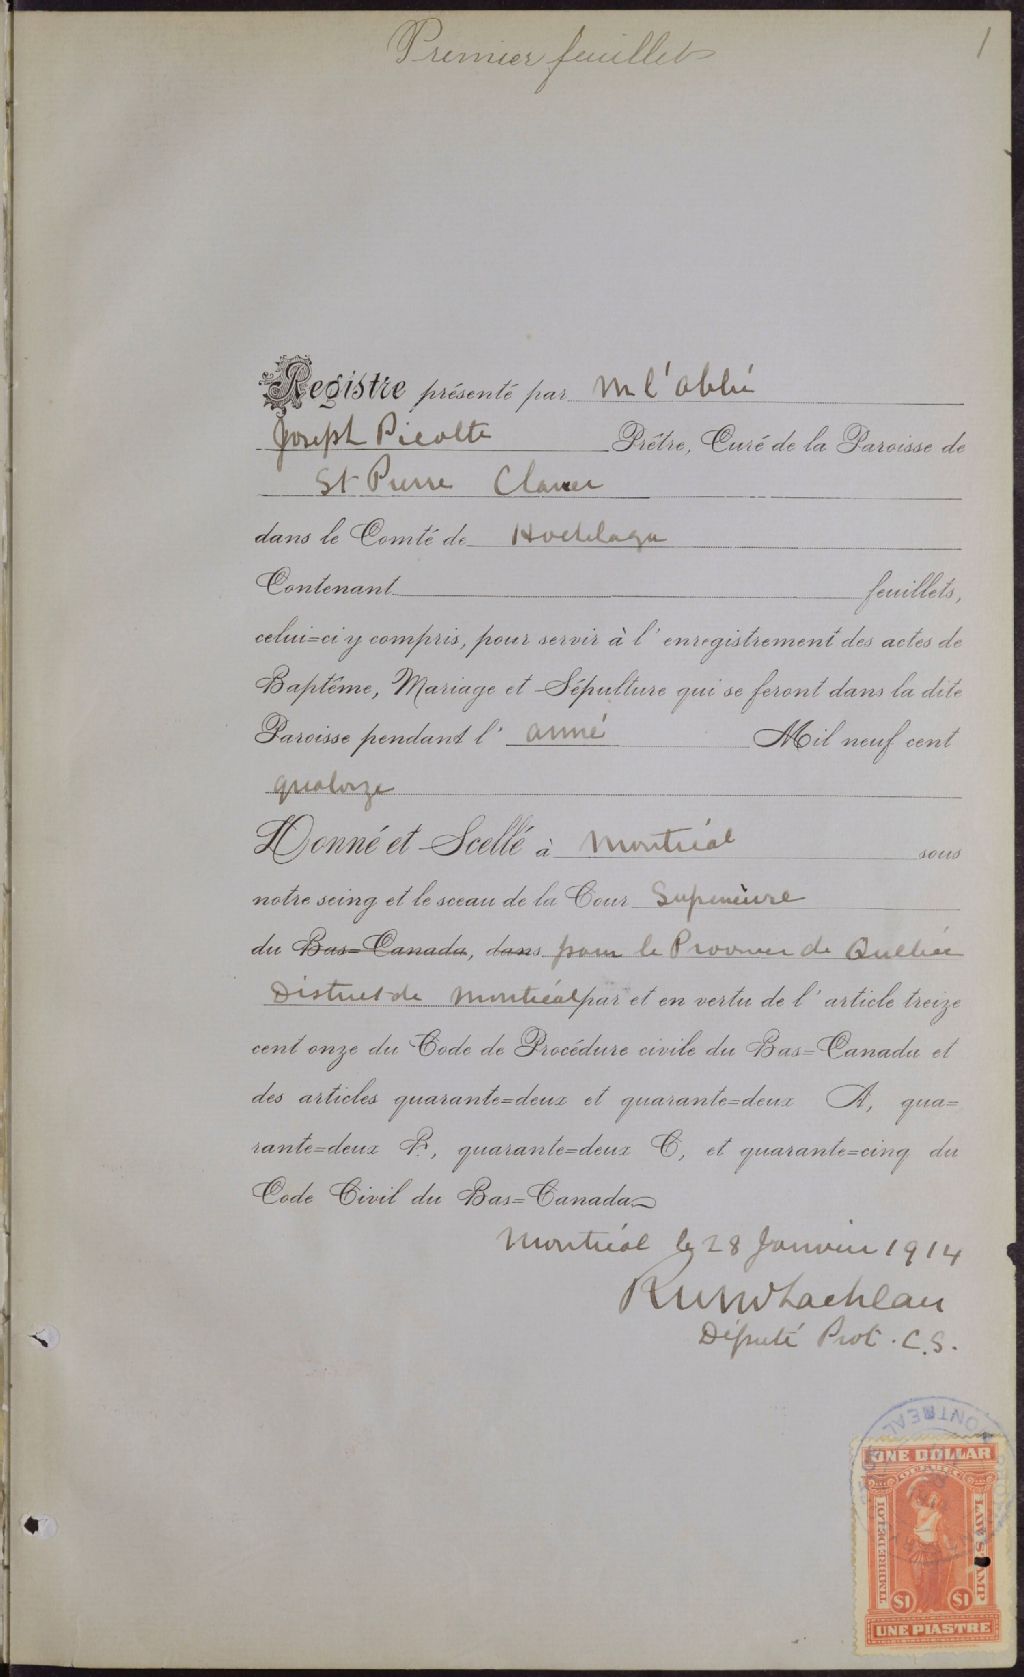 Premier feuillet
1
Registre présenté par M l'abbé
Joseph Picotte Prêtre, Curé de la Paroisse de
St Pierre Claver
dans le Comté de Hochelaga
Contenant feuillets,
celui=ci y compris, pour servir à l'enregistrement des actes de
Baptême, Mariage et Sépulture qui se feront dans la dite
Paroisse pendant l'anné Mil neuf cent
quatorze
Donné et Scellé à Montréal sous
notre seing et le sceau de la Cour Superieure
du Bas=Canada, dans pour la Province de Québec
District de Montréal par et en vertu de l'article treize
cent onze du Code de Procédure civile du Bas=Canada et
des articles quarante=deux et quarante=deux A, qua=
rante=deux B, quarante=deux C, et quarante=cinq du
Code Civil du Bas=Canada
Montréal le 28 Janvier 1914
Député Prot. C.S.
MONTREAL
ONE DOLLAR
QUEBEC
TIMBRE DE LOI
LAW STAMP
$1 $1
UNE PIASTRE